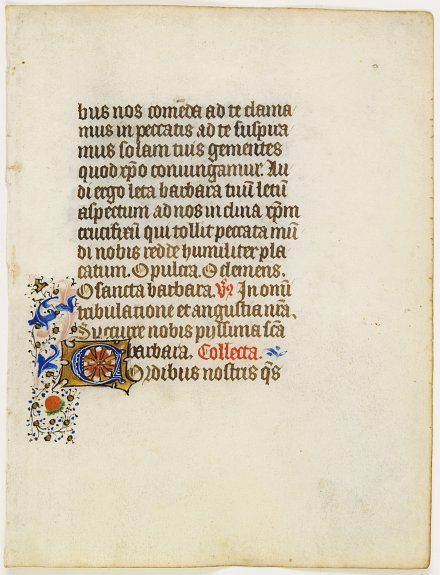 bus nos comēda ad te clama
mus in peccatis ad te suspira
mus so lam tuis gementes
quod xp̄o coniungamur. Au
di ergo leta barbara tuū letū
aspectum ad nos inclina xp̄m
crucifixū qui tollit peccata mū
di nobis redde humiliter pla
catum. O pulcra. O clemens.
O sancta barbara. V̄. In om̄i
tribulatione et angustia nr̄a.
Succurre nobis pijssima sc̄a
barbara. Collecta.
Cordibus nostris q̄s